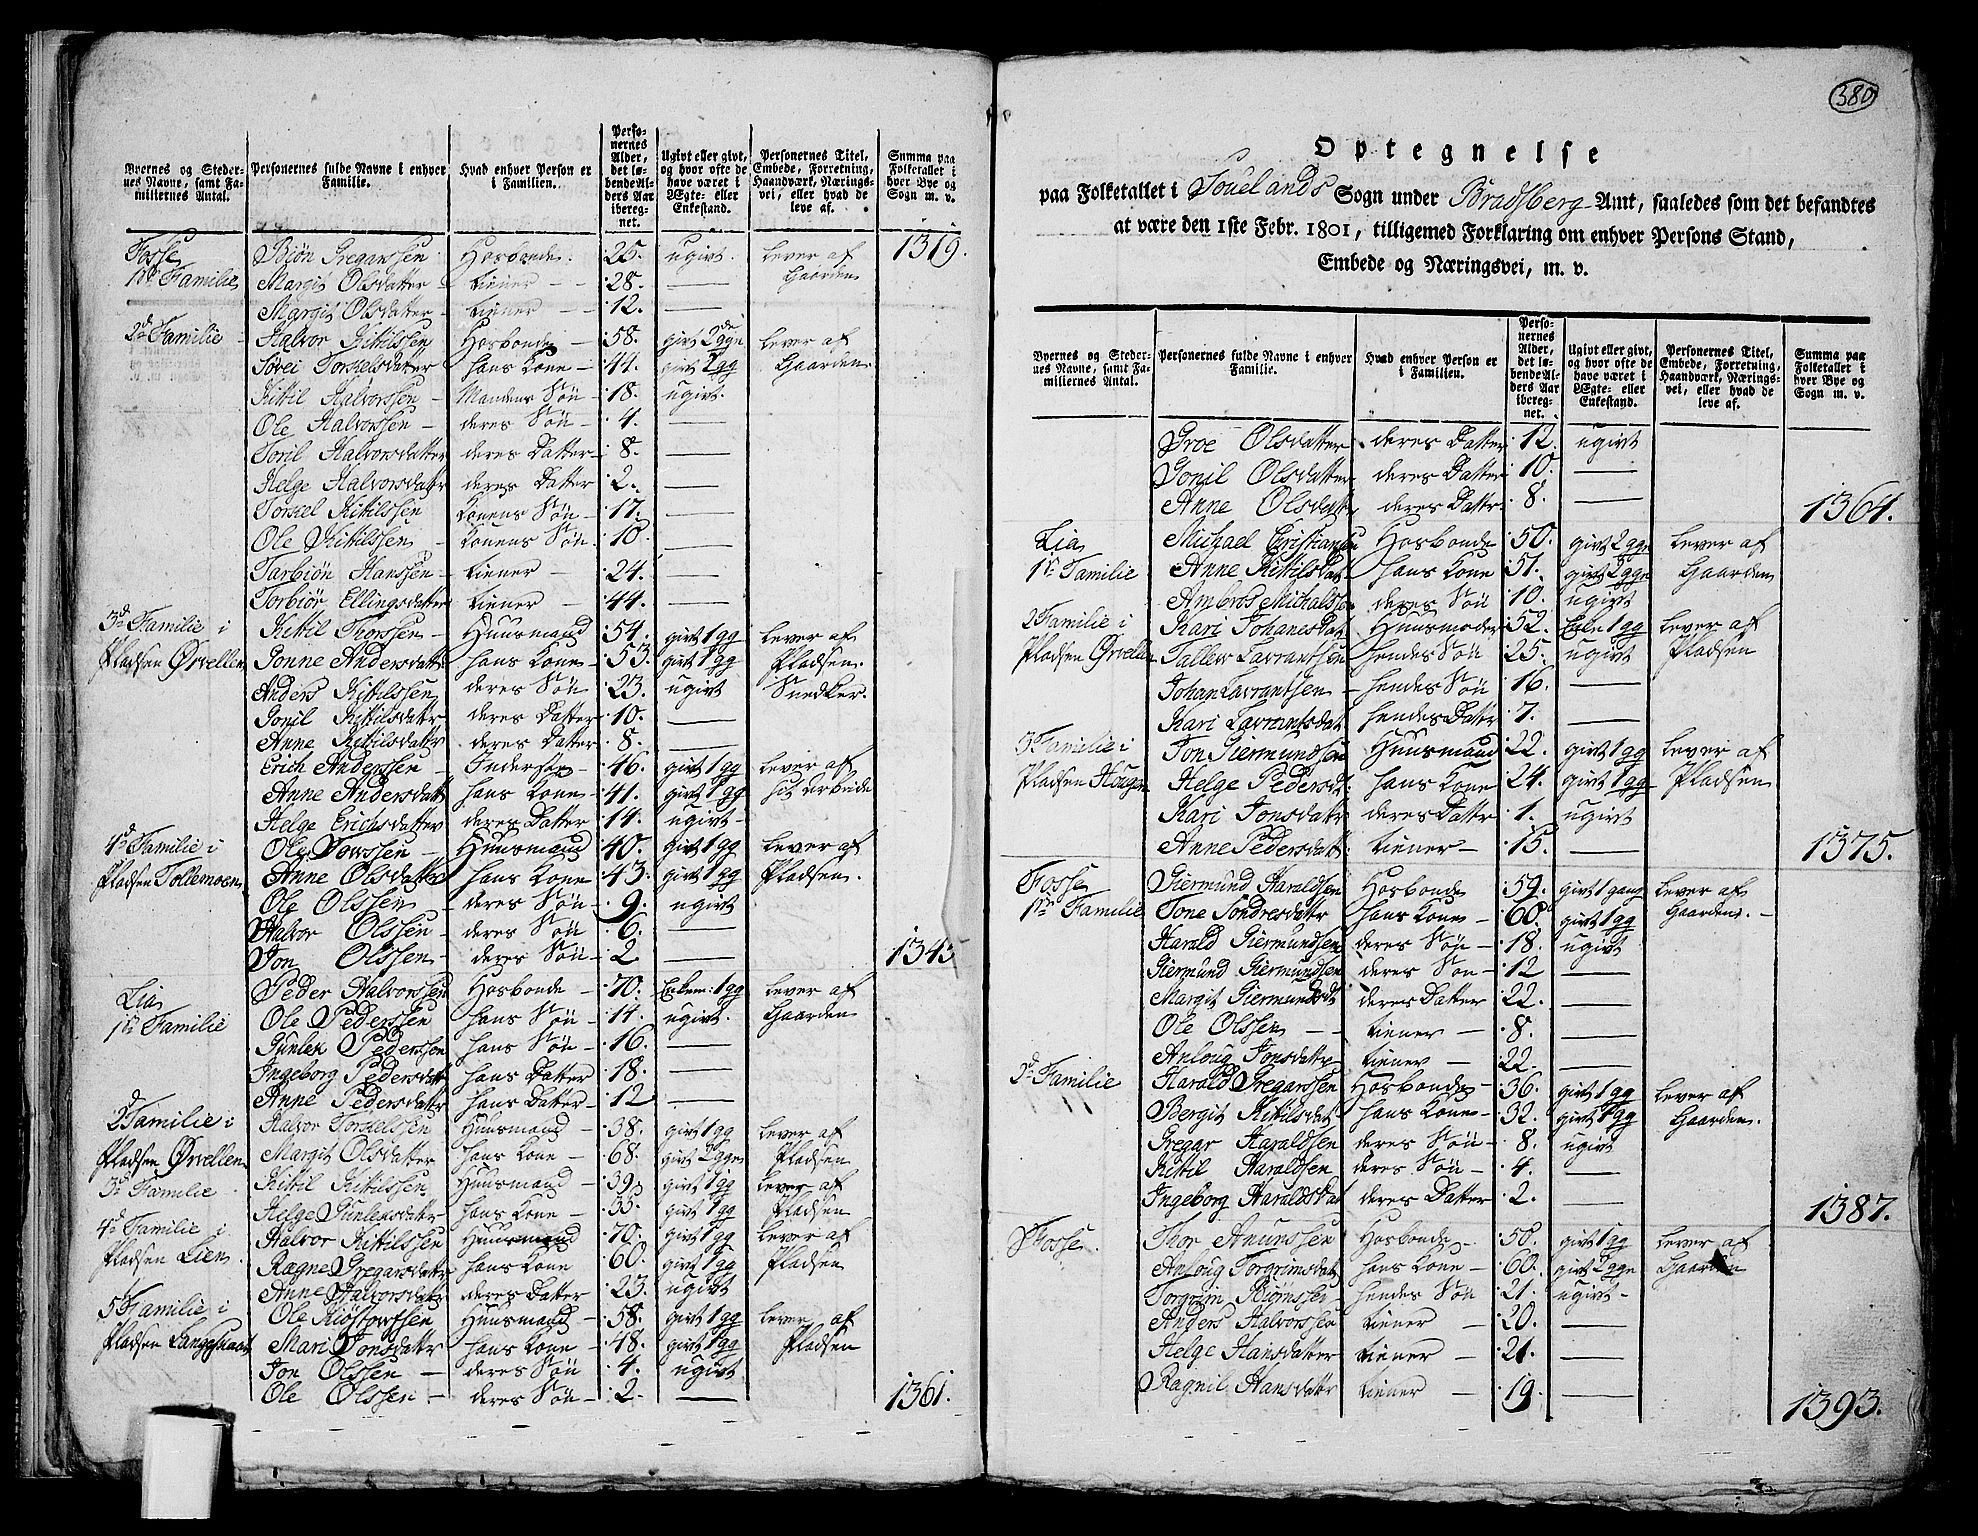 Byernes og Steder-
nes Navne, samt Fa-
miliernes Antal.
Personernes fulde Navne i enhver
Familie.
Hvad enhver Person er
i Familien.
Perso-
nernes
Alder,
det lø-
bende Al-
ders Aar
iberegnet.
Ugivt eller givt,
og hvor ofte de
have været i
Ægte- eller
Enkestand.
Personernes Titel,
Embede, Forretning,
Haandværk, Nærings-
vei, eller hvad de
leve af.
Summa paa
Folketallet i
hver Bye og
Sogn m. v.
Fosse Biøn Greganssen Hosbonde 25. ugivt. lever af 1319.
1te Familie Margit Olsdatter tiener 28. — Gaarden
Margit Olsdatter tiener 12. —
2d Familie Halvor Kittilssen Hosbonde 58. givt 2de gge lever af
Sövei Torkelsdatter hans Kone 44. givt 2 gg Gaarden
Kittil Halvorssen Mandens Søn 18. ugivt.
Ole Halvorssen deres Søn 4. —
Joril Halvorsdatter deres Datter 8. —
Helge Halvorsdattr deres Datter 2. —
Torkel Kittilssen Konens Søn 17. —
Ole Kittilssen Konens Søn 10. —
Tarbiön Hanssen tiener 24. —
Torbiör Ellingsdatter tiener 44. —
3d Familie i Kittil Thorssen Huusmand 54. givt 1 gg lever af
Pladsen Ørvellen Gonne Andersdattr hans Kone 53. givt 1 gg Pladsen.
Anders Kittilssen deres Søn 23. ugivt Snedker.
Gonil Kittilsdattr deres Datter 10. —
Anne Kittilsdattr deres Datter 8. —
Erich Anderssen Inderste 46. givt 1 gg lever af
Anne Andersdattr hans Kone 41. givt 1 gg sit arbeide
Helge Erichsdatter deres Datter 14. ugivt
4d Familie i Ole Torssen Huusmand 40. givt 1 gg lever af
Pladsen Tollemoen Anne Olsdatter hans Kone 43. givt 1 gg Pladsen.
Ole Olssen deres Søn 9. ugivt
Halvor Olssen deres Søn 6. —
Jon Olssen deres Søn 2 — 1345
Lia Peder Halvorssen Hosbonde 70. Enkem: 1 gg lever af
1te Familie Ole Pederssen hans Søn 14. ugivt. Gaarden
Gunlek Pederssen hans Søn 16. —
Ingeborg Pedersdattr hans Datter 18. —
Anne Pedersdattr hans Datter 12 —
2d Familie i Halvor Torkelssen Huusmand 38. givt 1 gg lever af
Pladsen Ørvellen Margit Olsdatter hans Kone 68. givt 2 gge Pladsen
3d Familie Kittil Kittilssen Huusmand 39. givt 1 gg lever af
Helge Gunleksdattr hans Kone 35. givt 1 gg Pladsen
4d Familie i Halvor Kittilssen Huusmand 70. givt 1 gg lever af
Pladsen Lien Ragne Gregarsdattr hans Kone 60. givt 1 gg Pladsen
Anne Halvorsdattr deres Datter 23. ugivt
5 Familie i Ole Kiöstowssen Huusmand 58. givt 1 gg lever af
Pladsen Mari Jonsdattr hans Kone 48. givt 1 gg Pladsen
Jon Olssen deres Søn 4. ugivt
Ole Olssen deres Søn 2. — 1361.
380
Optegnelse
paa Folketallet i Souelands Sogn under Bradsberg Amt, saaledes som det befandtes
at være den 1ste Febr. 1801, tilligemed Forklaring om enhver Persons Stand,
Embede og Næringsvei, m. v.
Byernes og Steder-
nes Navne, samt Fa-
miliernes Antal.
Personernes fulde Navne i enhver
Familie.
Hvad enhver Person er
i Familien.
Perso-
nernes
Alder,
det lø-
bende Al-
ders Aar
iberegnet.
Ugivt eller givt,
og hvor ofte de
have været i
Ægte- eller
Enkestand.
Personernes Titel,
Embede, Forretning,
Haandværk, Nærings-
vei, eller hvad de
leve af.
Summa paa
Folketallet i
hver Bye og
Sogn m. v.
Groe Olsdatter deres Datter 12. ugivt
Gonil Olsdatter deres Datter 10. —
Anne Olsdattr deres Dattr 8. — 1364.
Lia Michael Christianssen Hosbonde 50. givt 2 gge lever af
1te Familie Anne Kittilsdat hans Kone 51. givt 2 gge Gaarden
Ambros Michalssen deres Søn 10. ugivt
2 Familie i Kari Johanesdat Huusmoder 52. Enke 1 gg lever af
Pladsen Ørvellen Tallew Lavrantssen hendes Søn 25. ugivt Pladsen
Johan Lavrantsen hendes Søn 16. —
Kari Lavrantsdat hendes Dattr 7. —
3 Familie i Jon Giermundssen Huusmand 22. givt 1 gg lever af
Pladsen Hougen Helge Pedersdt: hans Kone 24. givt 1 gg Pladsen
Kari Jonsdattr deres Dattr 1. ugivt
Anne Pedersdatt: tiener 15. — 1375.
Fosse Giermund Haraldsen Hosbonde 59. givt 1 gang lever af
1te Familie Tone Sondresdattr hans Kone 60. givt 1 gg Gaarden.
Harald Giermundsen deres Søn 18. ugivt
Giermund Giermundsen deres Søn 12 —
Margit Giermundsdt deres Datter 22. —
Ole Olssen tiener 8. —
Anloug Jonsdattr tiener 22. —
2d Familie Harald Gregarssen Hosbonde 36. givt 1 gg lever af
Bergit Kittilsdat hans Kone 32. givt 1 gg Gaarden.
Gregar Haraldsen deres Søn 8. ugivt
Kittil Haraldsen deres Søn 4. —
Ingeborg Haraldsdat deres Datter 2. — 1387.
Fosse. Thor Anunssen Hosbonde 50. givt 1 gg lever af
Anloug Torgrimsdat hans Kone 60. givt 2 gge Gaarden
Torgrim Biörnssen hendes Søn 21. ugivt
Anders Halvorssen tiener 20. —
Helge Hansdatter tiener 21. —
Ragnil Hansdattr tiener 19. — 1393.